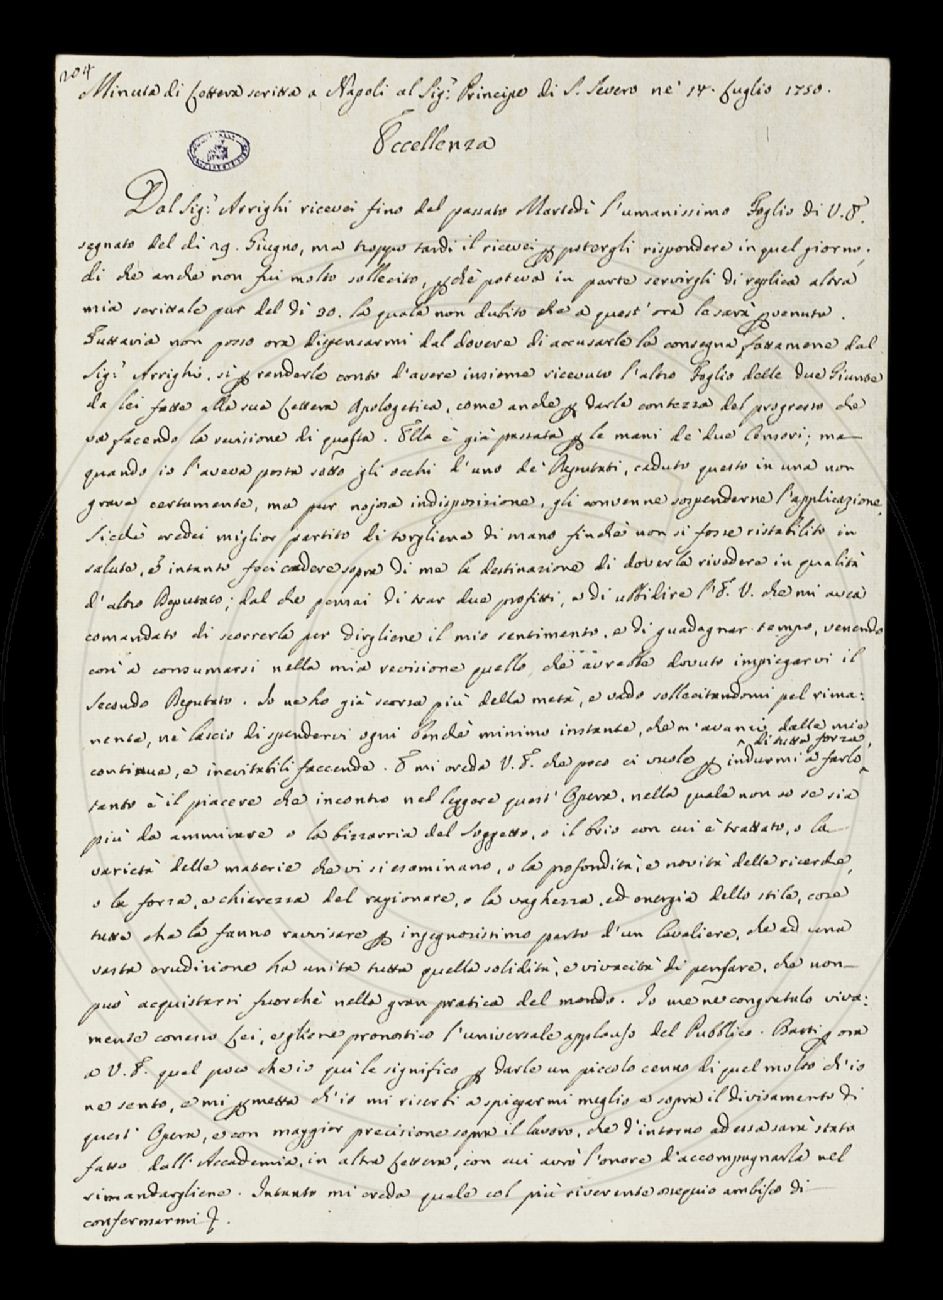 204
Minuta di Lettera scritta a Napoli al Sig.r Principe di S. Severo ne' 14. Luglio 1750.
Eccellenza
Dal Sig.r Arrighi ricevei fino del passato Martedì l'umanissimo Foglio di V.E.
segnato del dì 29. Giugno, ma troppo tardi il ricevei p poterli rispondere in quel giorno;
di che anche non fui molto sollecito, pchè poteva in parte servirgli di replica altra
mia scrittale pur del dì 30. la quale non dubito che a quest'ora le sarà pvenuta.
Tuttavia non posso ora dispensarmi dal dovere di accusarle la consegna fattamene dal
Sig.r Arrighi, sì p renderle conto d'avere insieme ricevuto l'altro Foglio delle due Giunte
da lei fatte alla sua Lettera Apologetica, come anche p darle contezza del progresso che
va facendo la revisione di questa. Ella è già passata p le mani de' due Censori; ma
quando io l'aveva posta sotto gli occhi d'uno de' Deputati, caduto questo in una non
grave certamente, ma pur nojosa indisposizione, gli convenne sospenderne l'applicazione,
Sicchè credei miglior partito di torgliena di mano finchè non si fosse ristabilito in
salute, e intanto feci cadere sopra di me la destinazione di doverla rivedere in qualità
d'altro Deputato; dal che pensai di trar due profitti, e di ubbidire l'E. V. che mi avea
comandato di scorrerla per dirgliene il mio sentimento, e di guadagnar tempo, venendo
così a consumarsi nella mia revisione quello, che avrebbe dovuto impiegarvi il
secondo Deputato. Io ne ho già scorsa più della metà, e vado sollecitandomi pel rima:
nente, nè lascio di spendervi ogni benchè minimo instante, che m'avanzi dalle mie
continue, e inevitabili faccende. E mi creda V.E. che poco ci vuole p indurmi a farlo
di tutta forza,
tanto è il piacere che incontro nel leggere quest'Opera, nella quale non so se sia
più da ammirare o la bizzarria del Soggetto, o il brio con cui è trattato, o la
varietà delle materie che vi si esaminano, o la profondità, e novità delle ricerche,
o la forza, e chiarezza del ragionare, o la vaghezza, ed energia dello stile, cose
tutte che la fanno ravvisare p ingegnosissimo parto d'un Cavaliere, che ad una
vasta erudizione ha unita tutta quella solidità, e vivacità di pensare, che non
può acquistarsi fuorchè nella gran pratica del mondo. Io me ne congratulo viva:
mente con esso Lei, e gliene pronostico l'universale applauso del Pubblico. Basti p ora
a V.E. quel poco che io quì le significo p darle un piccolo cenno di quel molto ch'io
ne sento, e mi pmetta ch'io mi riserbi a spiegarmi meglio e sopra il divisamento di
quest'Opera, e con maggior precisione sopra il lavoro, che d'intorno ad essa sarà stato
fatto dall'Accademia, in altra Lettera, con cui avrò l'onore d'accompagnarla nel
rimandargliene. Intanto mi creda quale col più riverente ossequio ambisco di
confermarmi